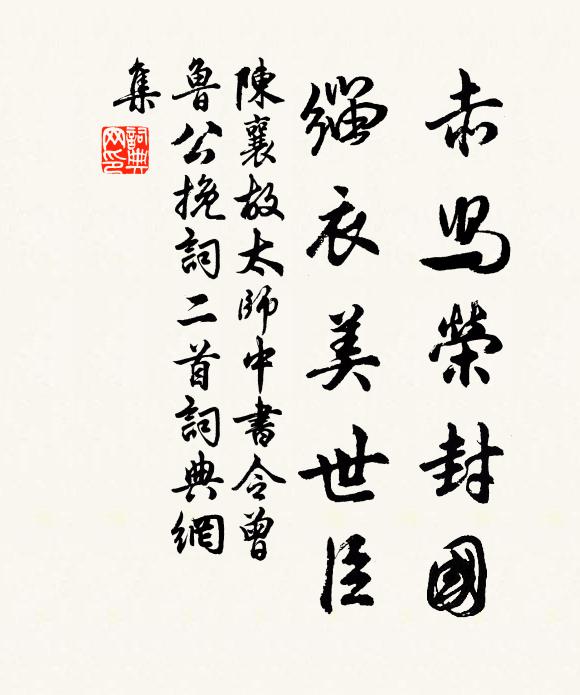 赤舄榮封國
緇衣美世臣
陳襄故太師中書令曾
魯公挽詞二首詞典網
集
詞典
网印